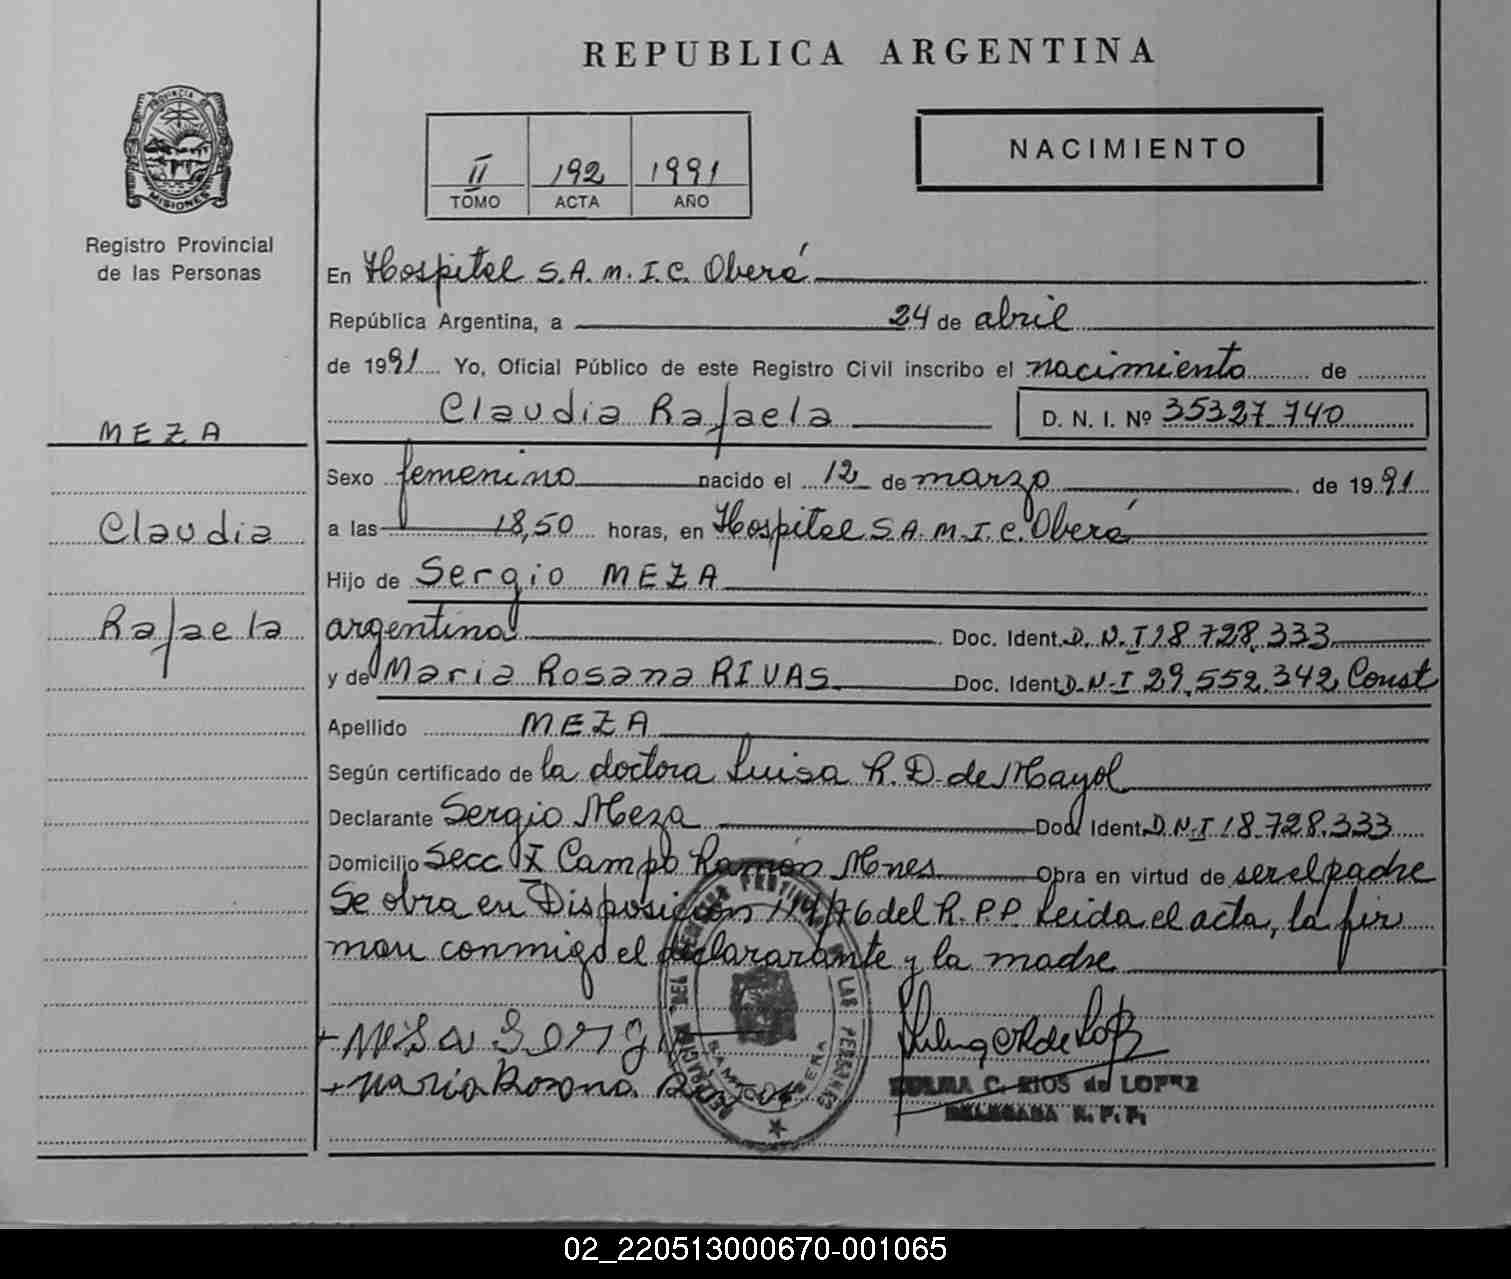 REPUBLICA ARGENTINA
PROVINCIA DE
MISIONES
Registro Provincial
de las Personas
II 192 1991
TOMO ACTA AÑO
NACIMIENTO
En Hospital S.A.M.I.C. Oberá
República Argentina, a 24 de abril
de 1991 Yo, Oficial Público de este Registro Civil inscribo el nacimiento de
Claudia Rafaela D. N. I. Nº 35327 740
MEZA
Sexo femenino nacido el 12 de marzo de 1991
Claudia
a las 18,50 horas, en Hospital S.A.M.I.C. Oberá
Hijo de Sergio MEZA
Rafaela
argentina Doc. Ident. D.N.I 18.728.333
y de Maria Rosana RIVAS Doc. Ident D.N.I 29.552.342 Const
Apellido MEZA
Según certificado de la doctora Luisa R. D. de Mayol
Declarante Sergio Meza Doc. Ident. D.N.I 18.728.333
Domicilio Secc. X Campo Ramón Mnes Obra en virtud de ser el padre
Se obra en Disposición 119/76 del R.P.P. Leida el acta, la fir
man conmigo el declararante y la madre
+ Mesa
+ Maria Rosana
C. RIOS de LOPEZ
DELEGADA R. P. P.
LAS PERSONAS
02_220513000670-001065